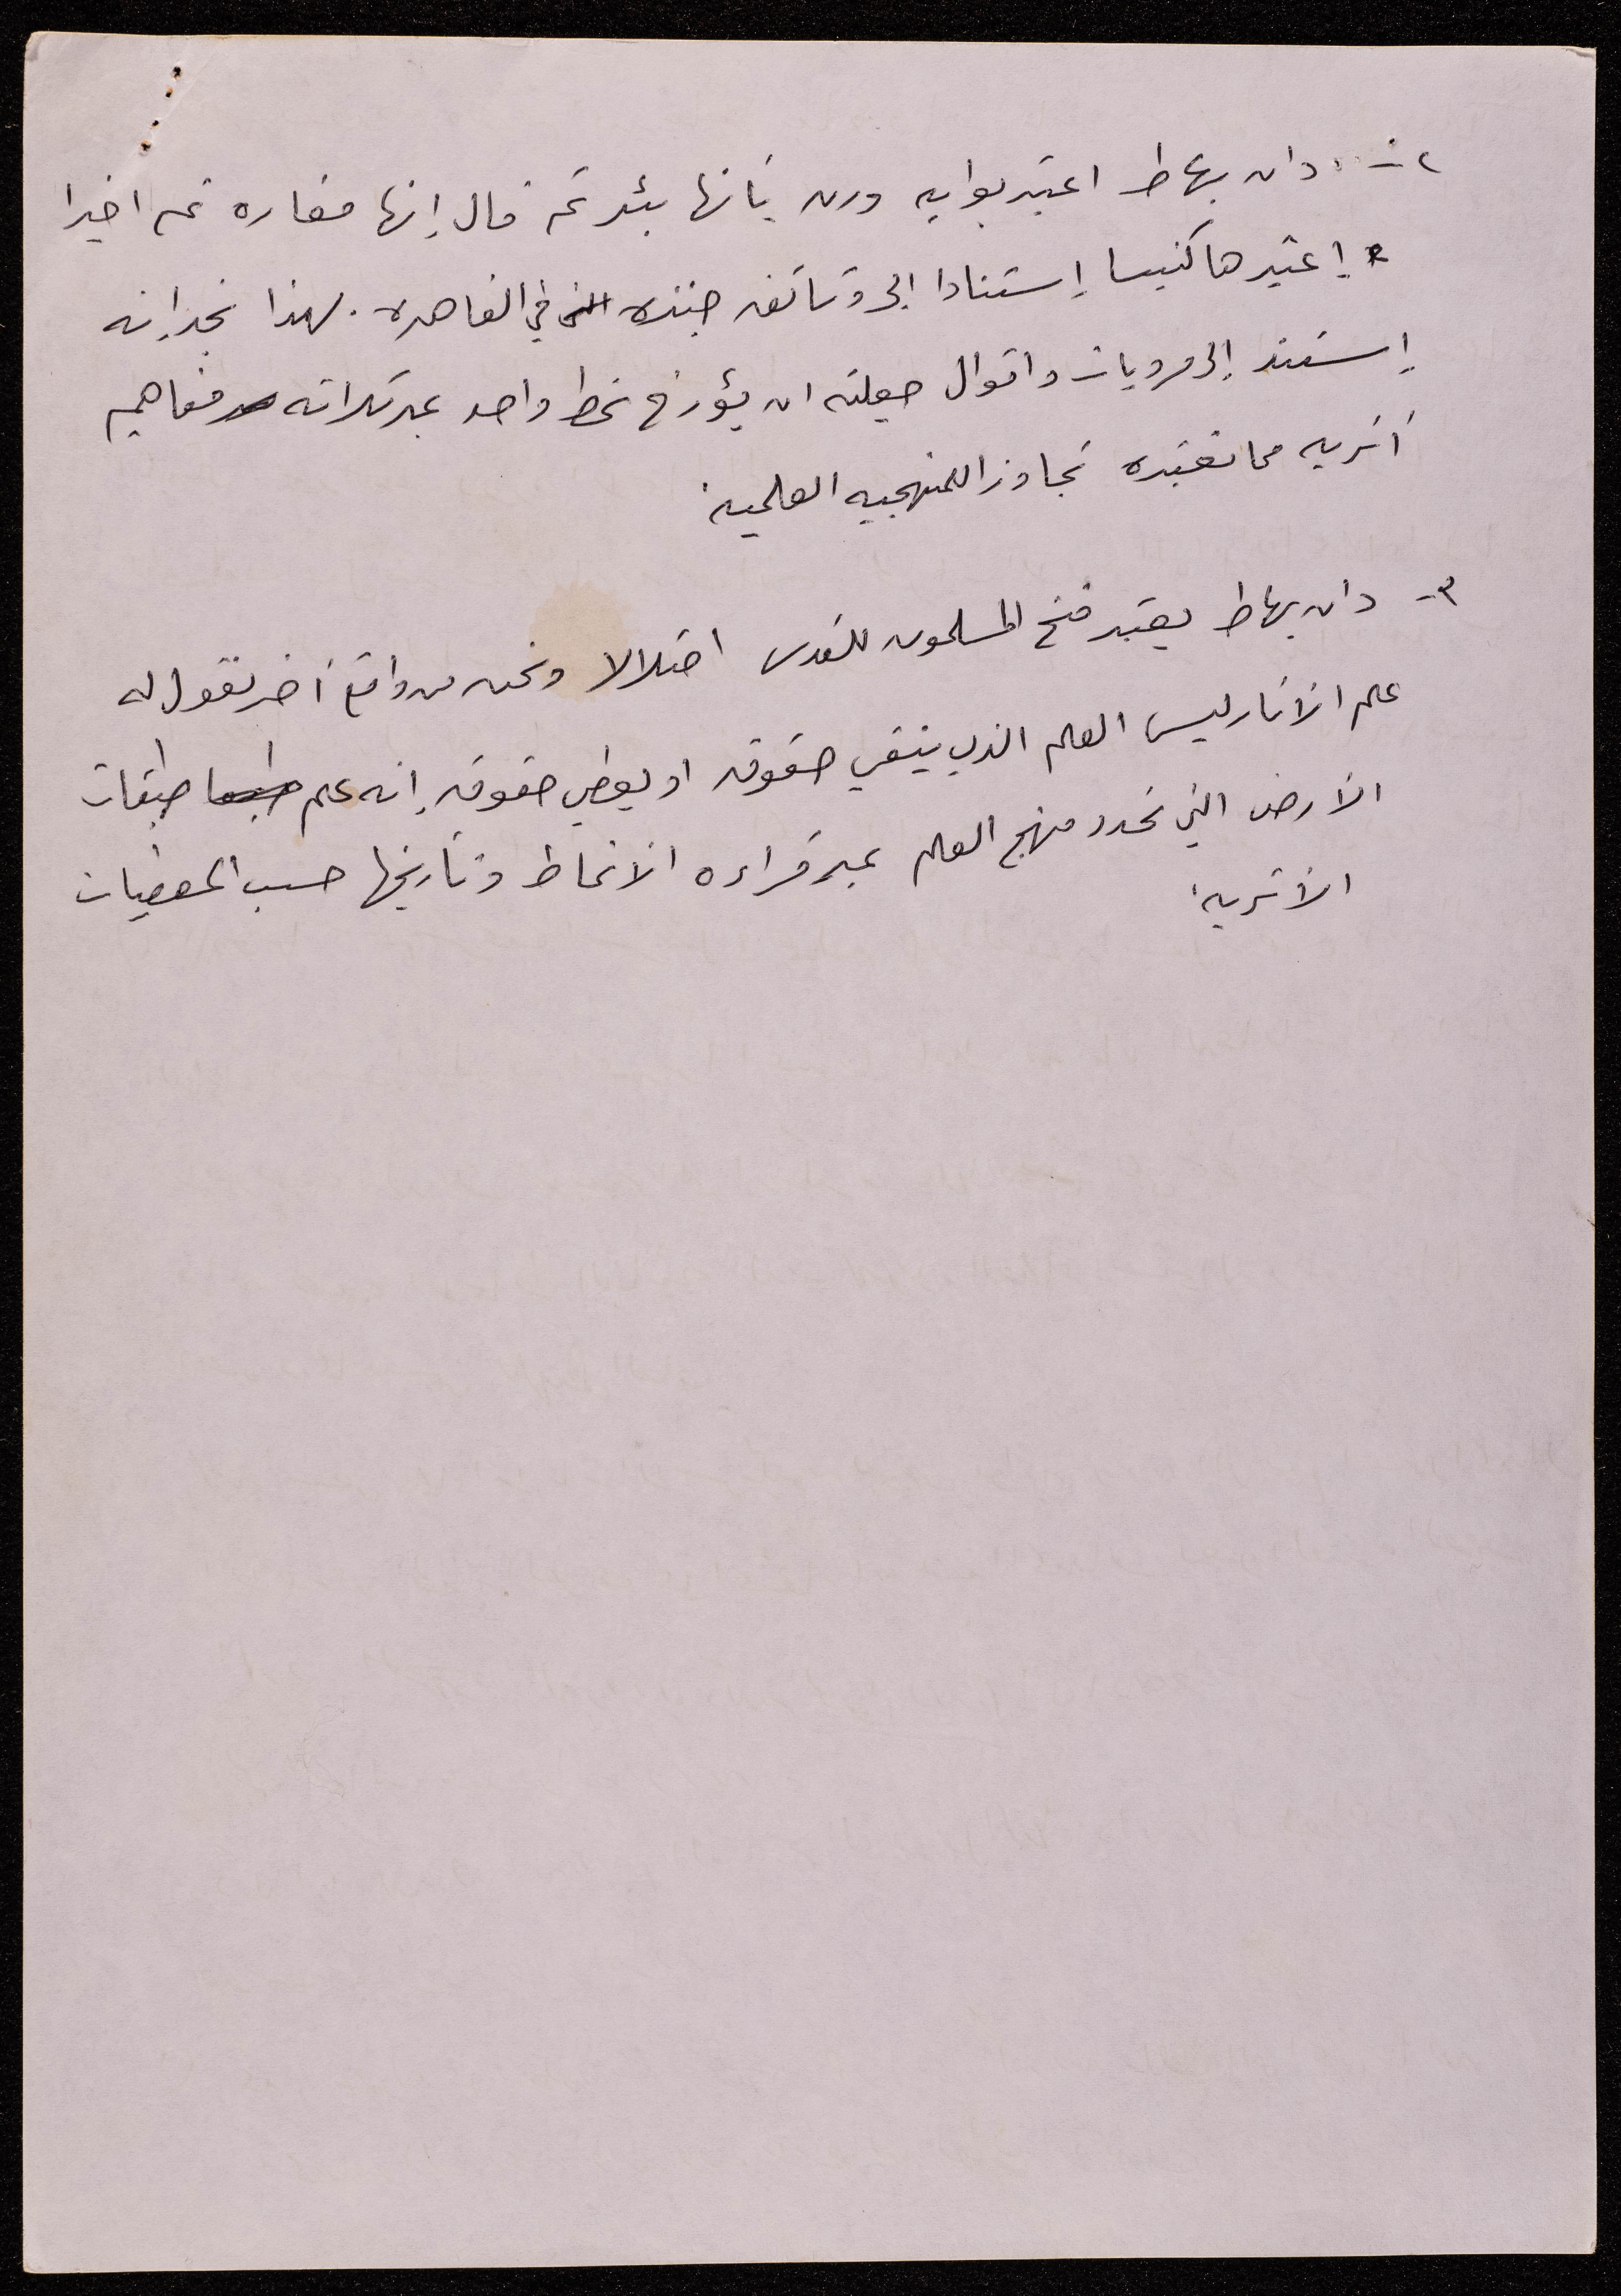 ٢- دان بهاط اعتبر بوابه ورن بأنها بئر ثم قال إنها مغاره ثم اخيرا
إعتبرها كنيسا إستنادا الى وثائق جنزه في القاهره. لهذا نجد إنه
إستند إلى مرويات واقوال جعلته ان يؤرخ نمط واحد عبر ثلاثه مفاهيم
أثريه مما نعتبره تجاوزا للمنهجيه العلميه
٣- دان بهاط يعتبر فتح المسلمون للقدس احتلالا ونحن من واقع أخر نقول له
علم الأثار ليس العلم الذي ينفي حقوق او يعطي حقوق إنه علم طبقات
الأرض التي تحدد منهج العلم عبر قراءه الانماط وتأريخها حسب المعطيات
الأثريه